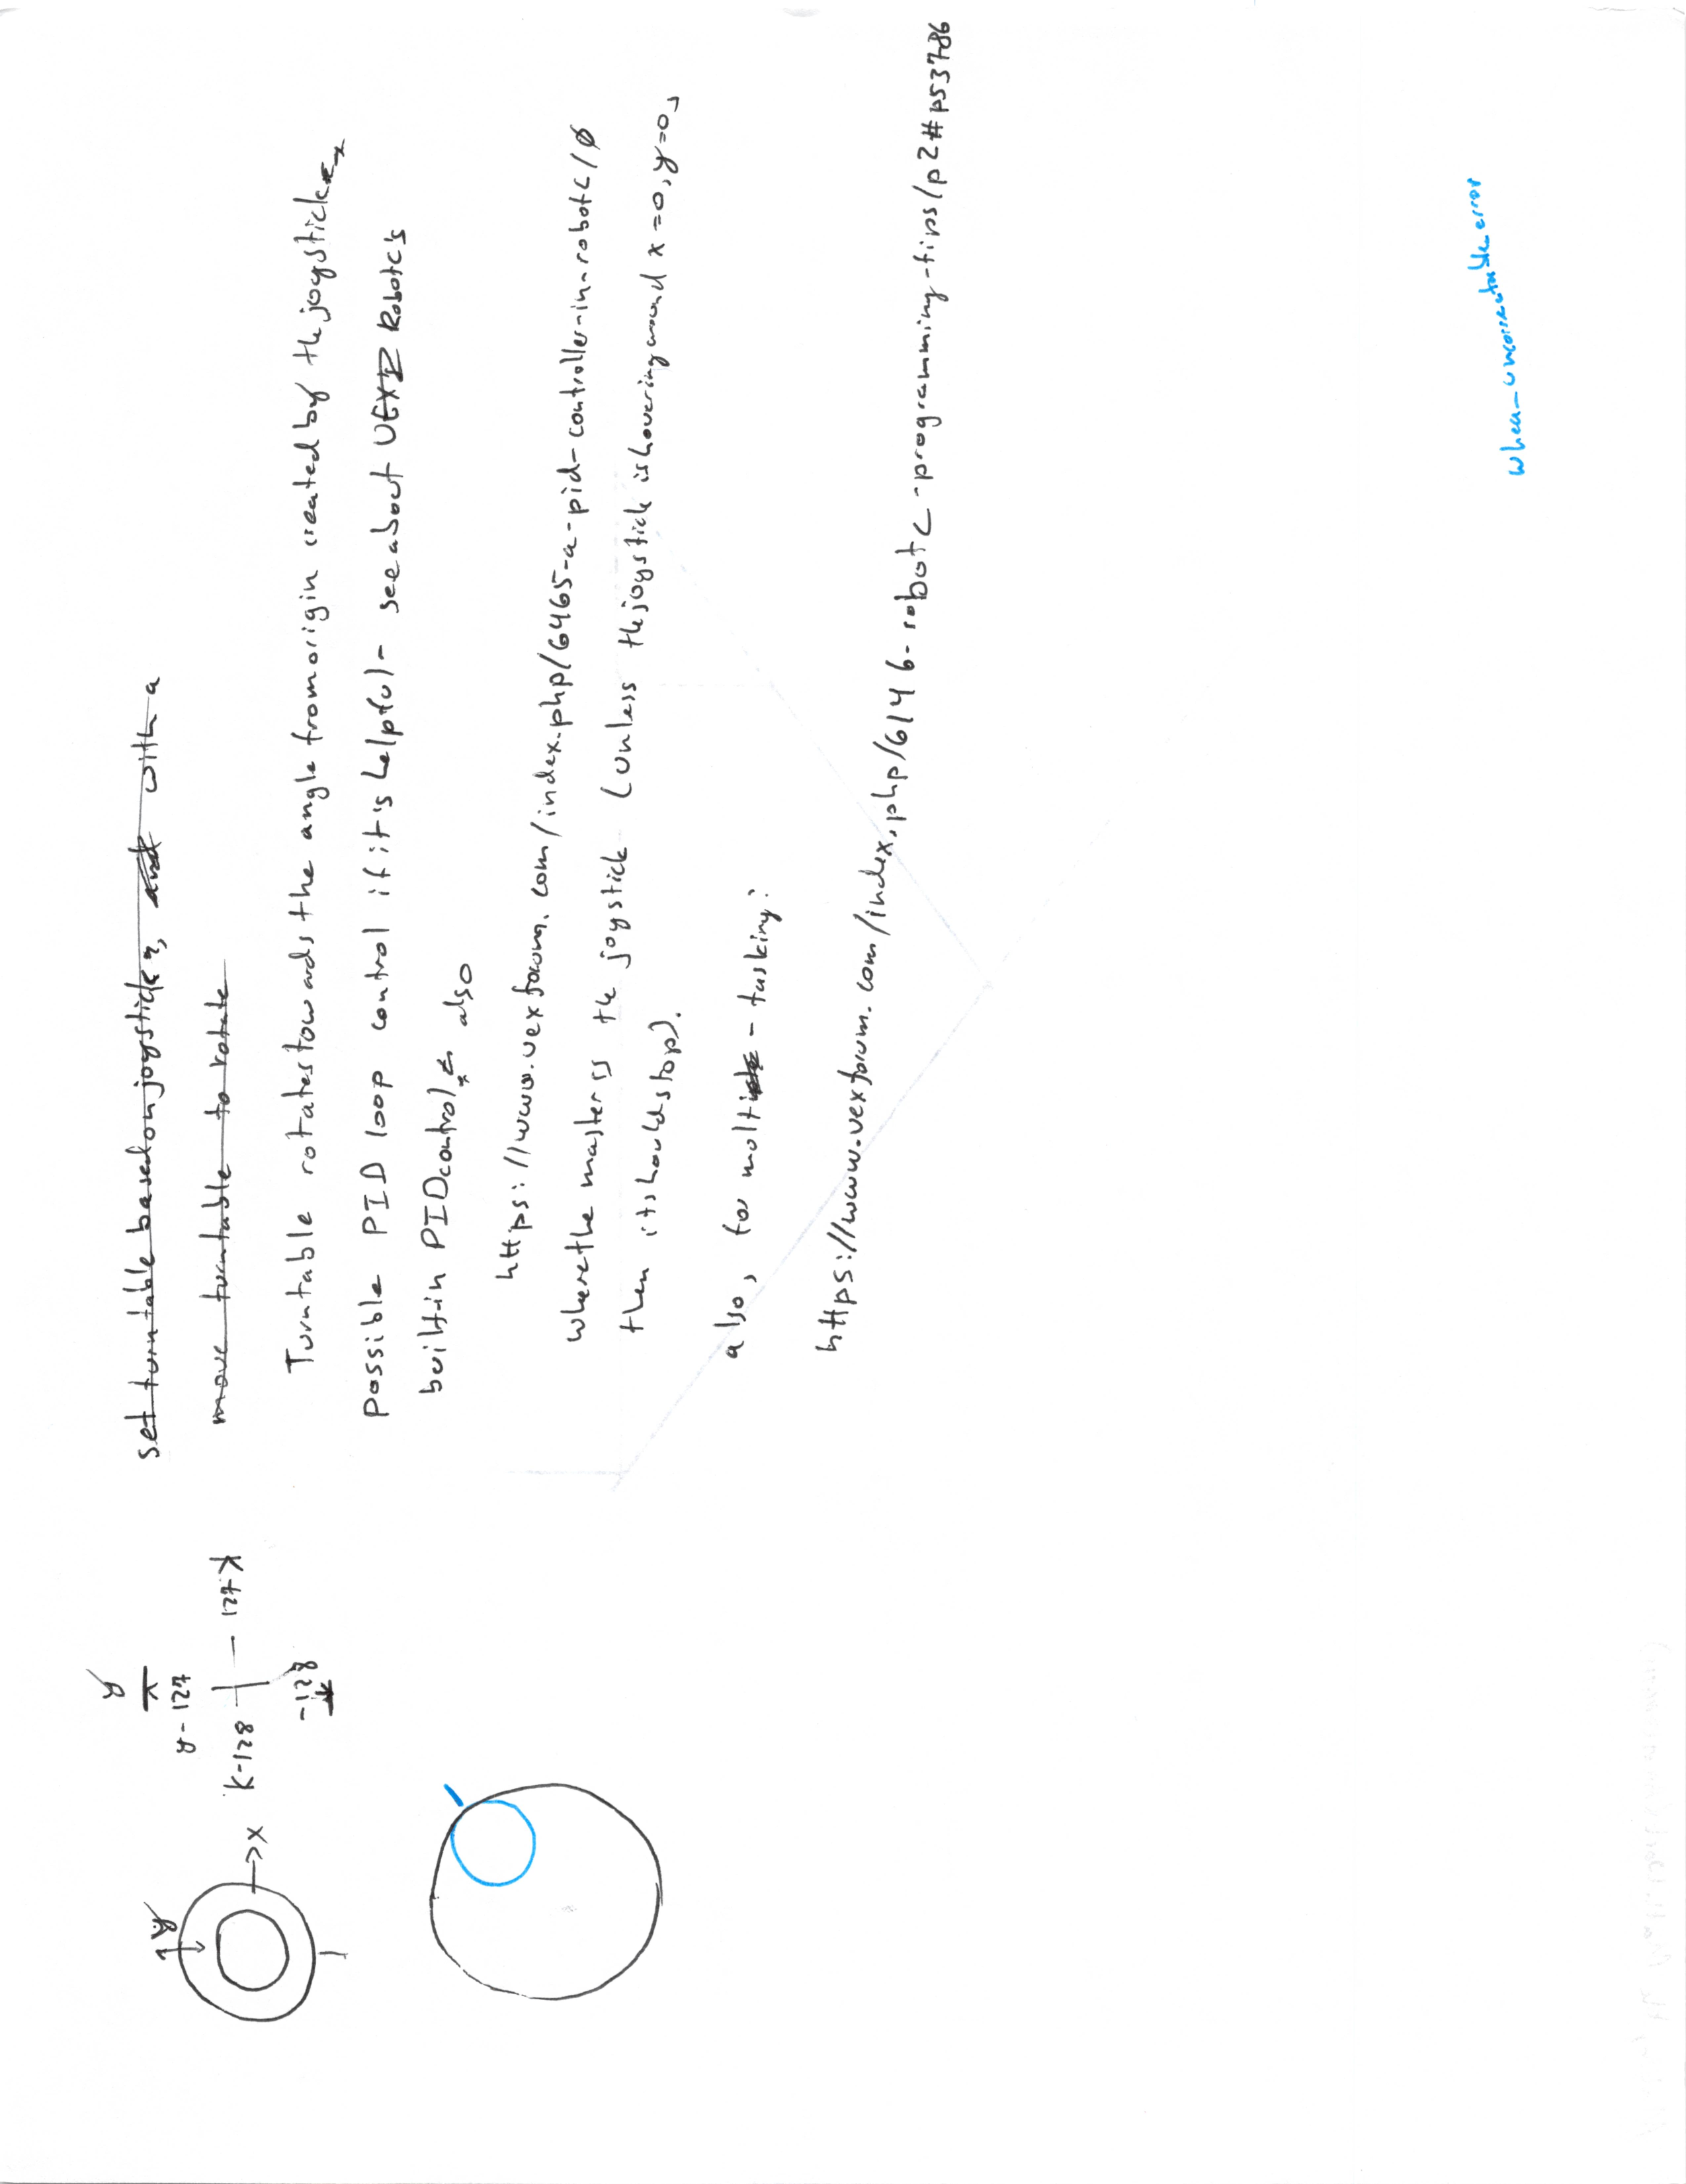 set turntable based on joystick x, and with a
move turntable to rotate
Turntable rotates towards the angle from origin created by the joystick
possible PID loop control if it's helpful - see about VEX Robotc's
built-in PID control also
https://www.vexforum.com/index.php/6465-a-pid-controller-in-robotc/0
where the master is the joystick (unless the joystick is hovering around x=0, y=0,
then it should stop).
also, for multi-tasking:
https://www.vexforum.com/index.php/6146-robotc-programming-tips/p2#p53786
y
y-127
x-128
127 x
-128
y
x
whea_uncorrectable_error